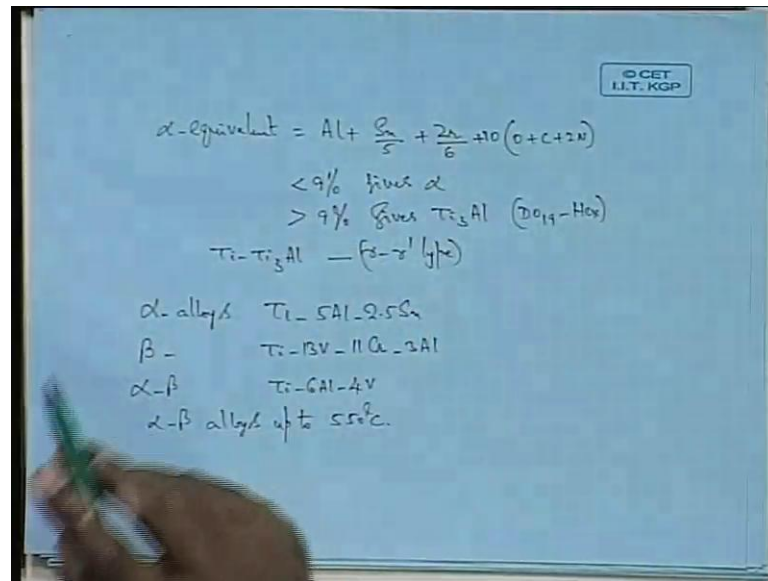 © CET
I.I.T. KGP
α-equivalent = Al + Sn/5 + Zr/6 + 10 (O + C + 2N)
< 9% gives α
> 9% gives Ti₃Al (DO₁₉ - Hex)
Ti - Ti₃Al — (γ - γ' type)
α- alloys Ti - 5Al - 2.5Sn
β - Ti - 13V - 11Cr - 3Al
α-β Ti - 6Al - 4V
α-β alloys up to 550°C.